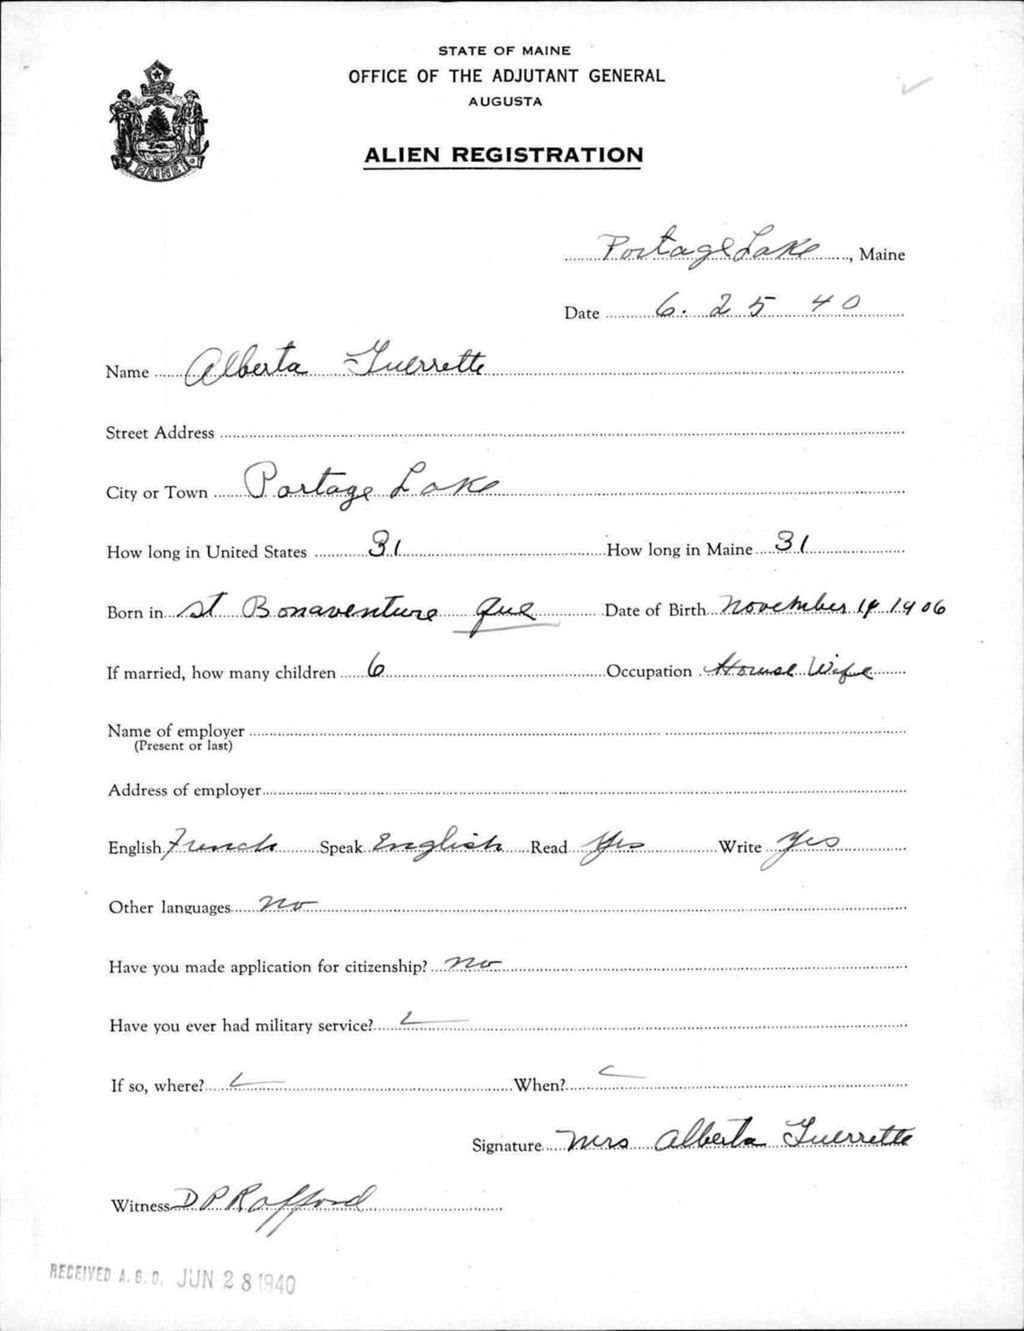 STATE OF MAINE
OFFICE OF THE ADJUTANT GENERAL
AUGUSTA
ALIEN REGISTRATION
MAINE
Portage Lake, Maine
Date 6. 25 40
Name Alberta Guerrette
Street Address
City or Town Portage Lake
How long in United States 31 How long in Maine 31
Born in St Bonaventure Que Date of Birth November 14 1906
If married, how many children 6 Occupation House Wife
Name of employer
(Present or last)
Address of employer
English French Speak English Read Yes Write Yes
Other languages no
Have you made application for citizenship? no
Have you ever had military service?
If so, where? When?
Signature Mrs Alberta Guerrette
Witness D P Rafford
RECEIVED A. G. O. JUN 28 1940